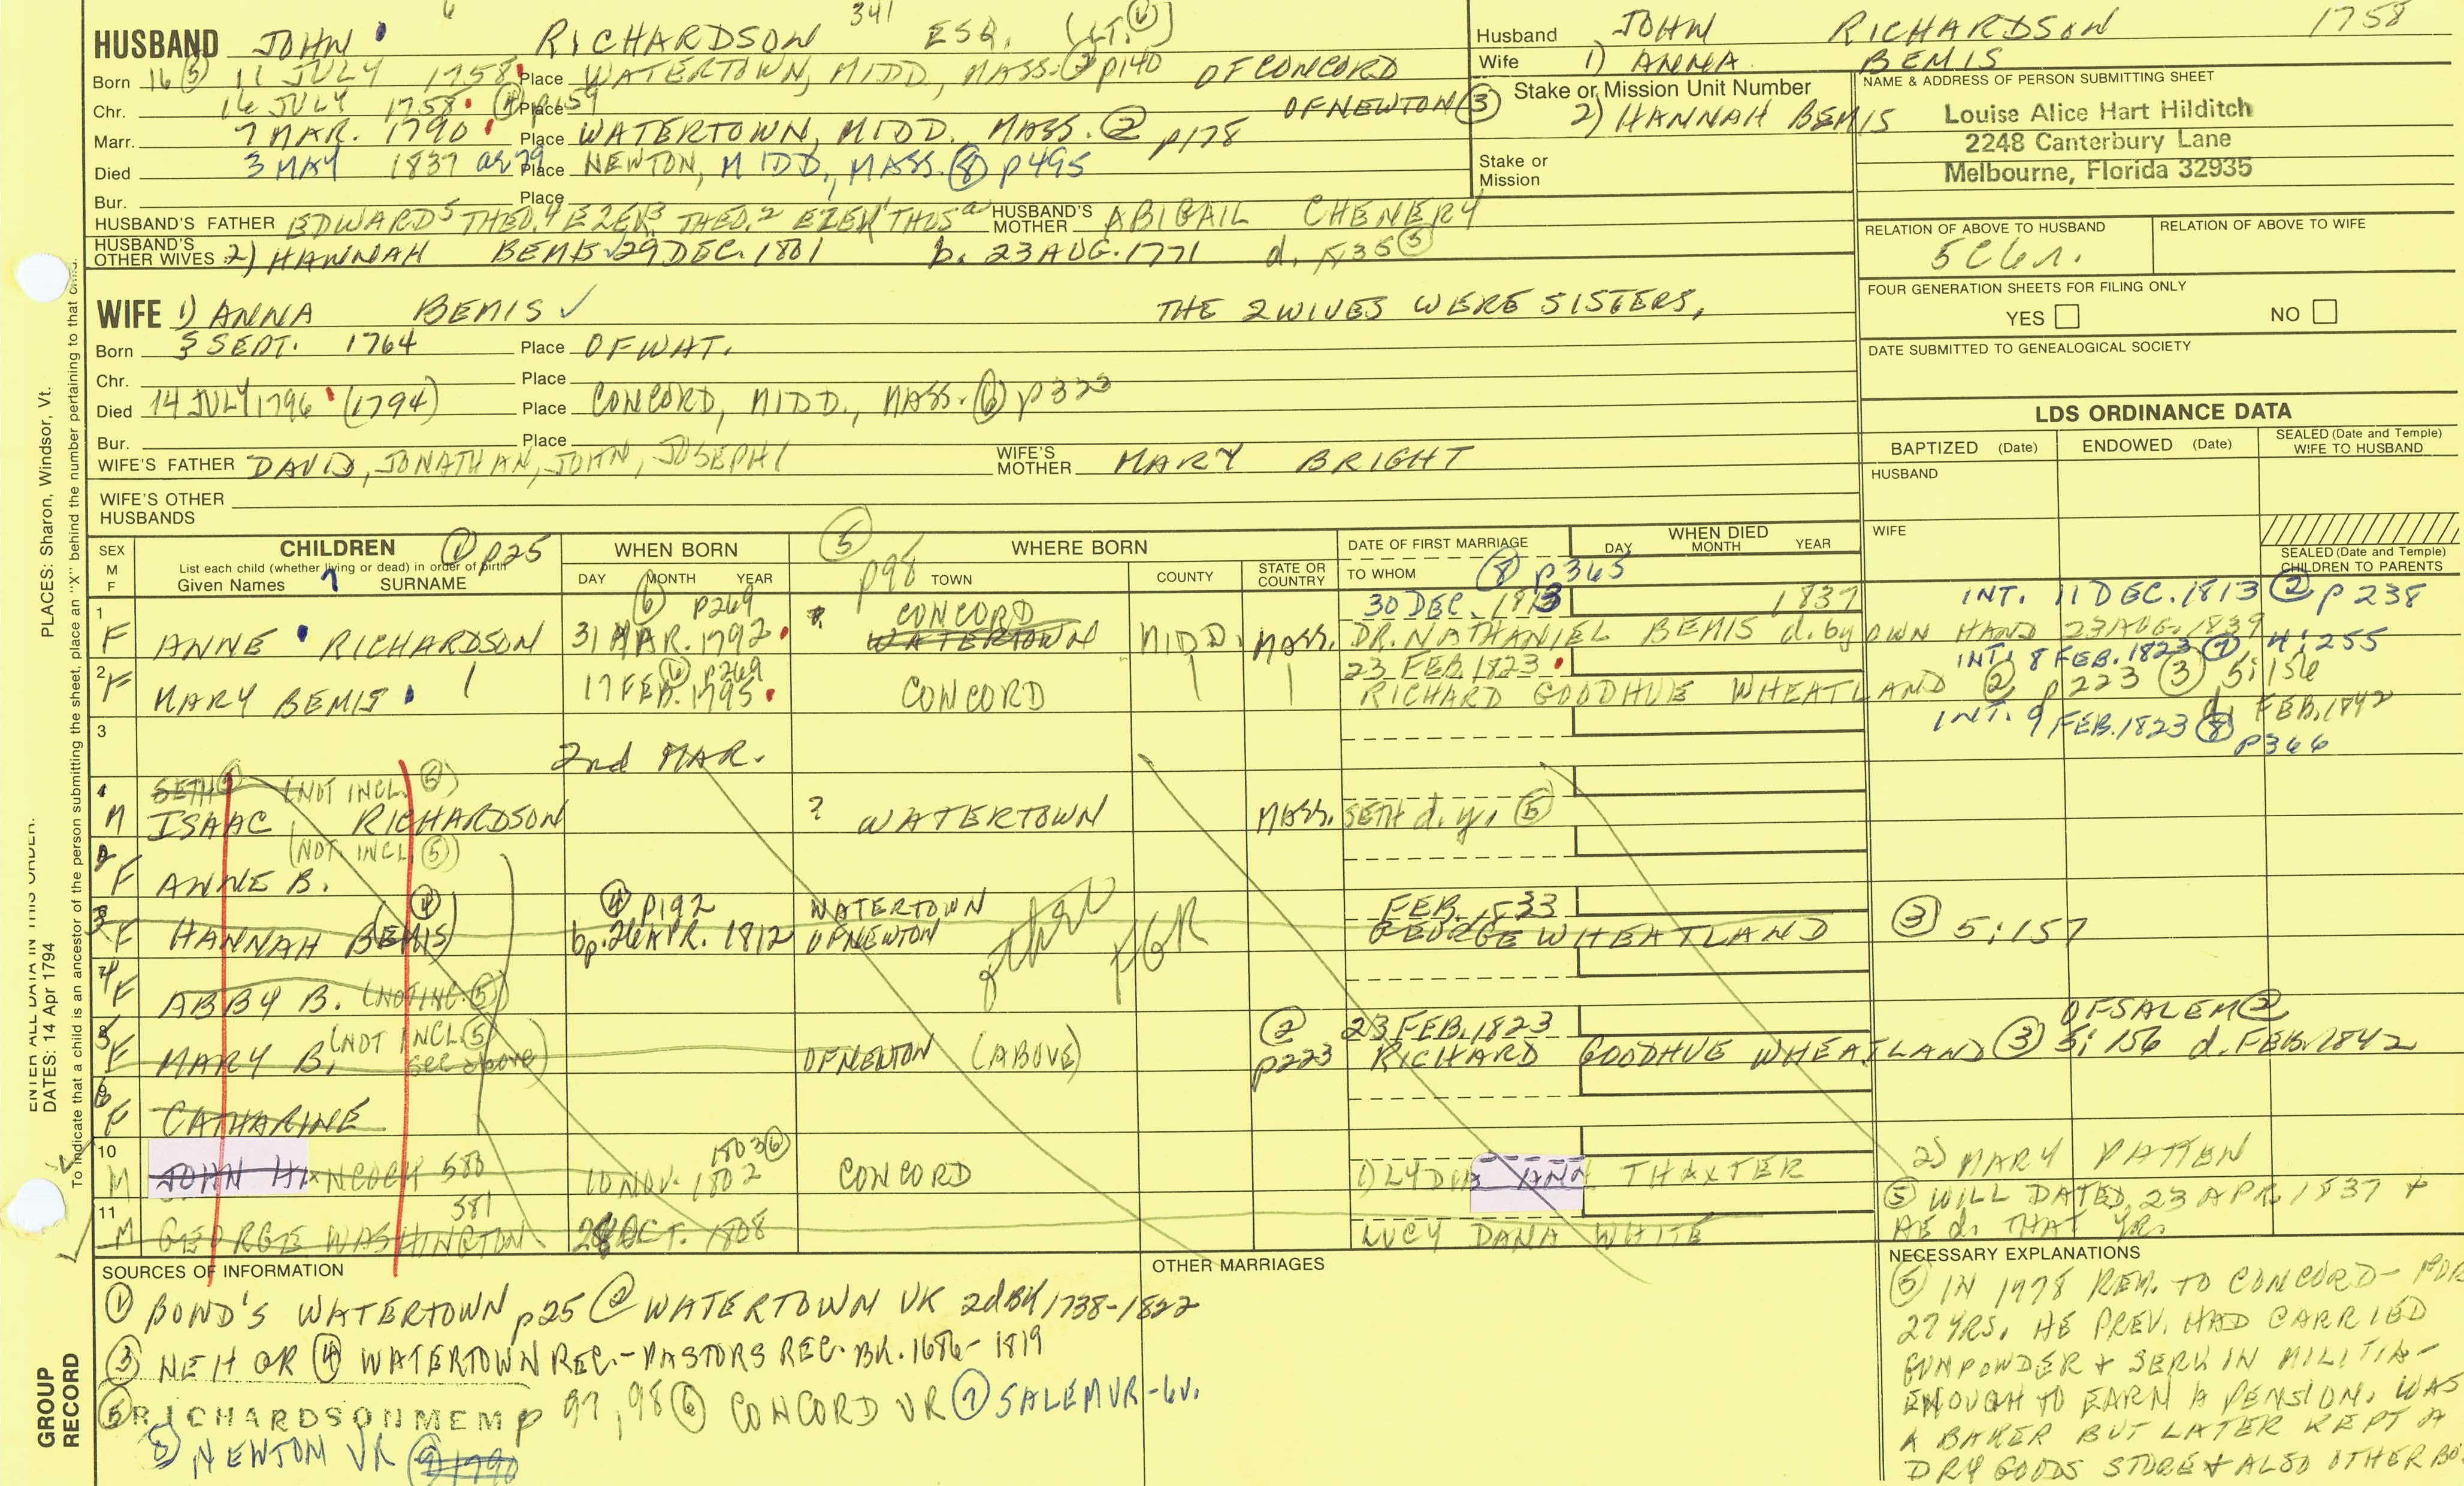 6 341
HUSBAND JOHN RICHARDSON ESQ. (LT. 6)
Born 16 (5) 11 JULY 1758 Place WATERTOWN, MIDD., MASS. (2) p140 OF CONCORD
Chr. 16 JULY 1758 (4) p159 Place OF NEWTON (3)
Marr. 7 MAR. 1790 Place WATERTOWN, MIDD. MASS. (2) p178
Died 3 MAY 1837 ae 79 Place NEWTON, MIDD., MASS. (8) p495
Bur. Place
HUSBAND'S FATHER EDWARD5 THEO.4 EZEK3 THEO.2 EZEK1 HUSBAND'S MOTHER ABIGAIL CHENERY
HUSBAND'S OTHER WIVES 2) HANNAH BEMIS 29 DEC. 1801 b. 23 AUG. 1771 d.
Husband JOHN RICHARDSON 1758
Wife 1) ANNA BEMIS
Stake or Mission Unit Number
2) HANNAH BEMIS
Stake or Mission
NAME & ADDRESS OF PERSON SUBMITTING SHEET
Louise Alice Hart Hilditch
2248 Canterbury Lane
Melbourne, Florida 32935
RELATION OF ABOVE TO HUSBAND RELATION OF ABOVE TO WIFE
FOUR GENERATION SHEETS FOR FILING ONLY
YES NO
DATE SUBMITTED TO GENEALOGICAL SOCIETY
WIFE 1) ANNA BEMIS ✓ THE 2 WIVES WERE SISTERS.
Born SEPT. 1764 Place OF WAT.
Chr. Place
Died 14 JULY 1796 (1794) Place CONCORD, MIDD., MASS. (6) p333
Bur. Place
WIFE'S FATHER DAVID, JONATHAN, JOHN, JOSEPH1 WIFE'S MOTHER MARY BRIGHT
WIFE'S OTHER HUSBANDS
LDS ORDINANCE DATA
BAPTIZED (Date) ENDOWED (Date) SEALED (Date and Temple) WIFE TO HUSBAND
HUSBAND
WIFE
SEALED (Date and Temple) CHILDREN TO PARENTS
SEX M F
CHILDREN (1) p25
List each child (whether living or dead) in order of birth
Given Names 7 SURNAME
WHEN BORN
DAY MONTH YEAR
(5) p98
WHERE BORN
TOWN COUNTY STATE OR COUNTRY
DATE OF FIRST MARRIAGE
TO WHOM (8) p365
WHEN DIED
DAY MONTH YEAR
1 (6) p269 CONCORD 30 DEC. 1813 1837 INT. 11 DEC. 1813 (2) p 238
F ANNE RICHARDSON 31 MAR. 1792 WATERTOWN MIDD. MASS. DR. NATHANIEL BEMIS d. by OWN HAND 23 AUG. 1839
2 (6) p269 23 FEB. 1823 INT. 8 FEB. 1823 (7) 4:255
F MARY BEMIS 17 FEB. 1795 CONCORD RICHARD GOODHUE WHEATLAND (2) p223 (3) 5:156
d. FEB. 1842
INT. 9 FEB. 1823 (8) p366
3
2nd MAR.
SETH (NOT INCL. 5)
M ISAAC RICHARDSON ? WATERTOWN MASS. SETH d. y. (5)
(NOT INCL. 5)
F ANNE B.
3 (4) (4) p192 WATERTOWN FEB. 1833
F HANNAH BEMIS bp. 26 APR. 1812 OF NEWTON GEORGE WHEATLAND (3) 5:157
other FGR
4 F ABBY B. (NOT INC. 5)
5 (NOT INCL. 5 (2) 23 FEB. 1823 OF SALEM (2)
F MARY B. see above) OF NEWTON (ABOVE) p223 RICHARD GOODHUE WHEATLAND (3) 5:156 d. FEB. 1842
6
F CATHARINE
10 1803 (6) 2) MARY PATTEN
M JOHN HANCOCK 580 10 NOV. 1802 CONCORD 1) LYDIA ANN THAXTER
11 581 (5) WILL DATED 23 APR. 1837 +
M GEORGE WASHINGTON OCT. 1808 LUCY DANA WHITE HE d. THAT YR.
SOURCES OF INFORMATION
(1) BOND'S WATERTOWN p25 (2) WATERTOWN VR 2d BK 1738-1822
(3) NEH GR (4) WATERTOWN REC.-PASTORS REC. BK. 1686-1819
(5) RICHARDSON MEM p 97, 98 (6) CONCORD VR (7) SALEM VR-6v.
(8) NEWTON VR
OTHER MARRIAGES
NECESSARY EXPLANATIONS
(5) IN 1778 REM. TO CONCORD- FOR
27 YRS. HE PREV. HAD CARRIED
GUNPOWDER + SERV. IN MILITIA-
ENOUGH TO EARN A PENSION. WAS
A BAKER BUT LATER KEPT A
DRY GOODS STORE + ALSO OTHER
PLACES: Sharon, Windsor, Vt.
To indicate that a child is an ancestor of the person submitting the sheet, place an "X" behind the number pertaining to that
ENTER ALL DATA IN THIS ORDER:
DATES: 14 Apr 1794
GROUP RECORD